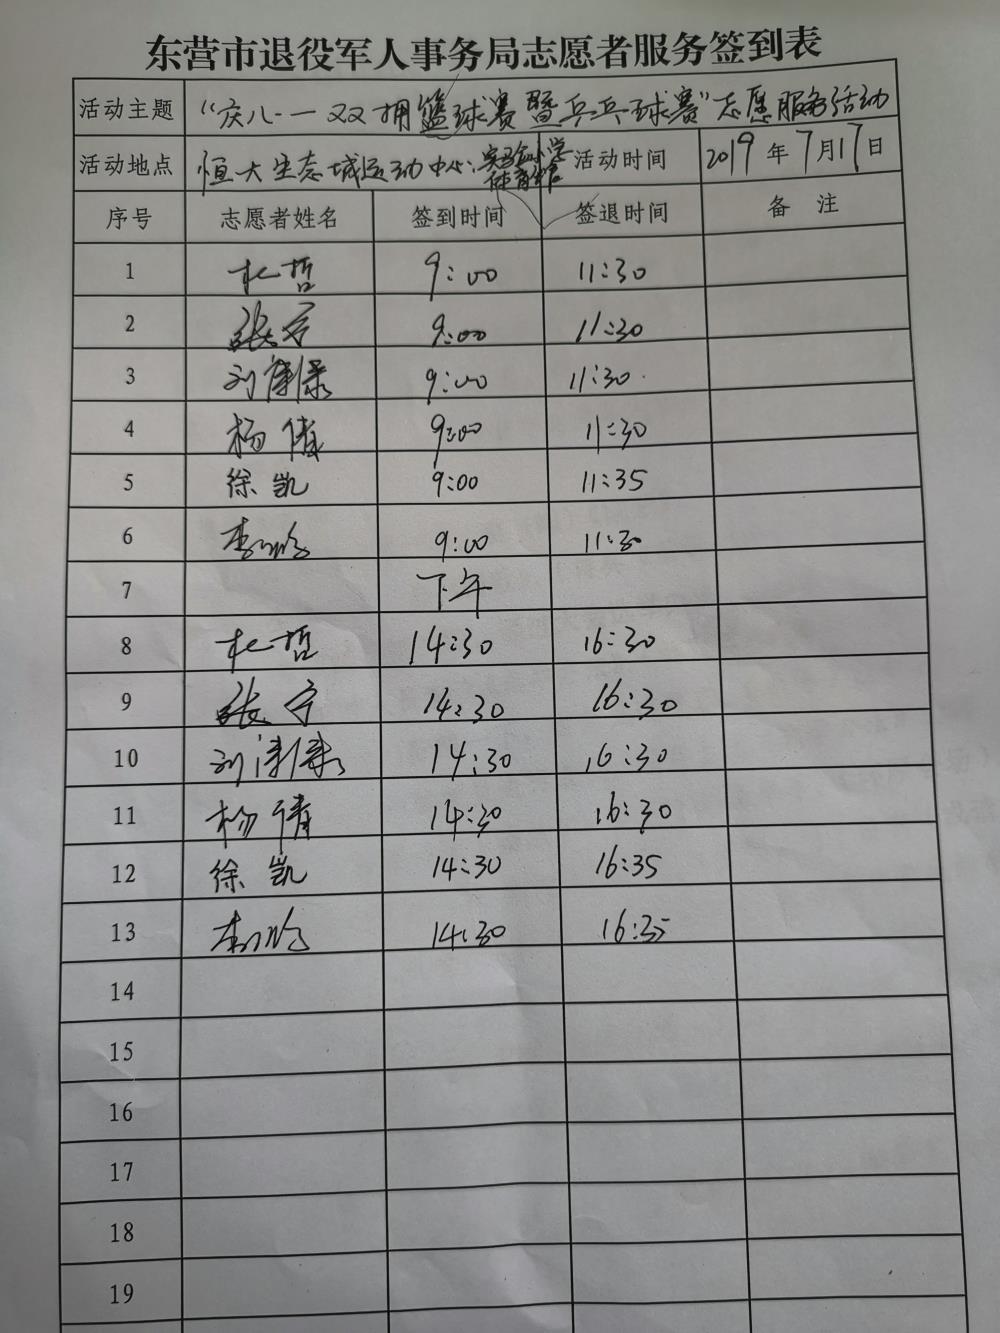 东营市退役军人事务局志愿者服务签到表
活动主题 “庆八一双拥篮球赛暨乒乓球赛”志愿服务活动
活动地点 恒大生态城运动中心、实验小学体育馆 活动时间 2019年7月17日
序号 志愿者姓名 签到时间 签退时间 备注
1 杜哲 9:00 11:30
2 张宁 9:00 11:30
3 刘 9:00 11:30
4 杨倩 9:00 11:30
5 徐凯 9:00 11:35
6 李 9:00 11:30
7 下午
8 杜哲 14:30 16:30
9 张宁 14:30 16:30
10 刘 14:30 16:30
11 杨倩 14:30 16:30
12 徐凯 14:30 16:35
13 李 14:30 16:35
14
15
16
17
18
19